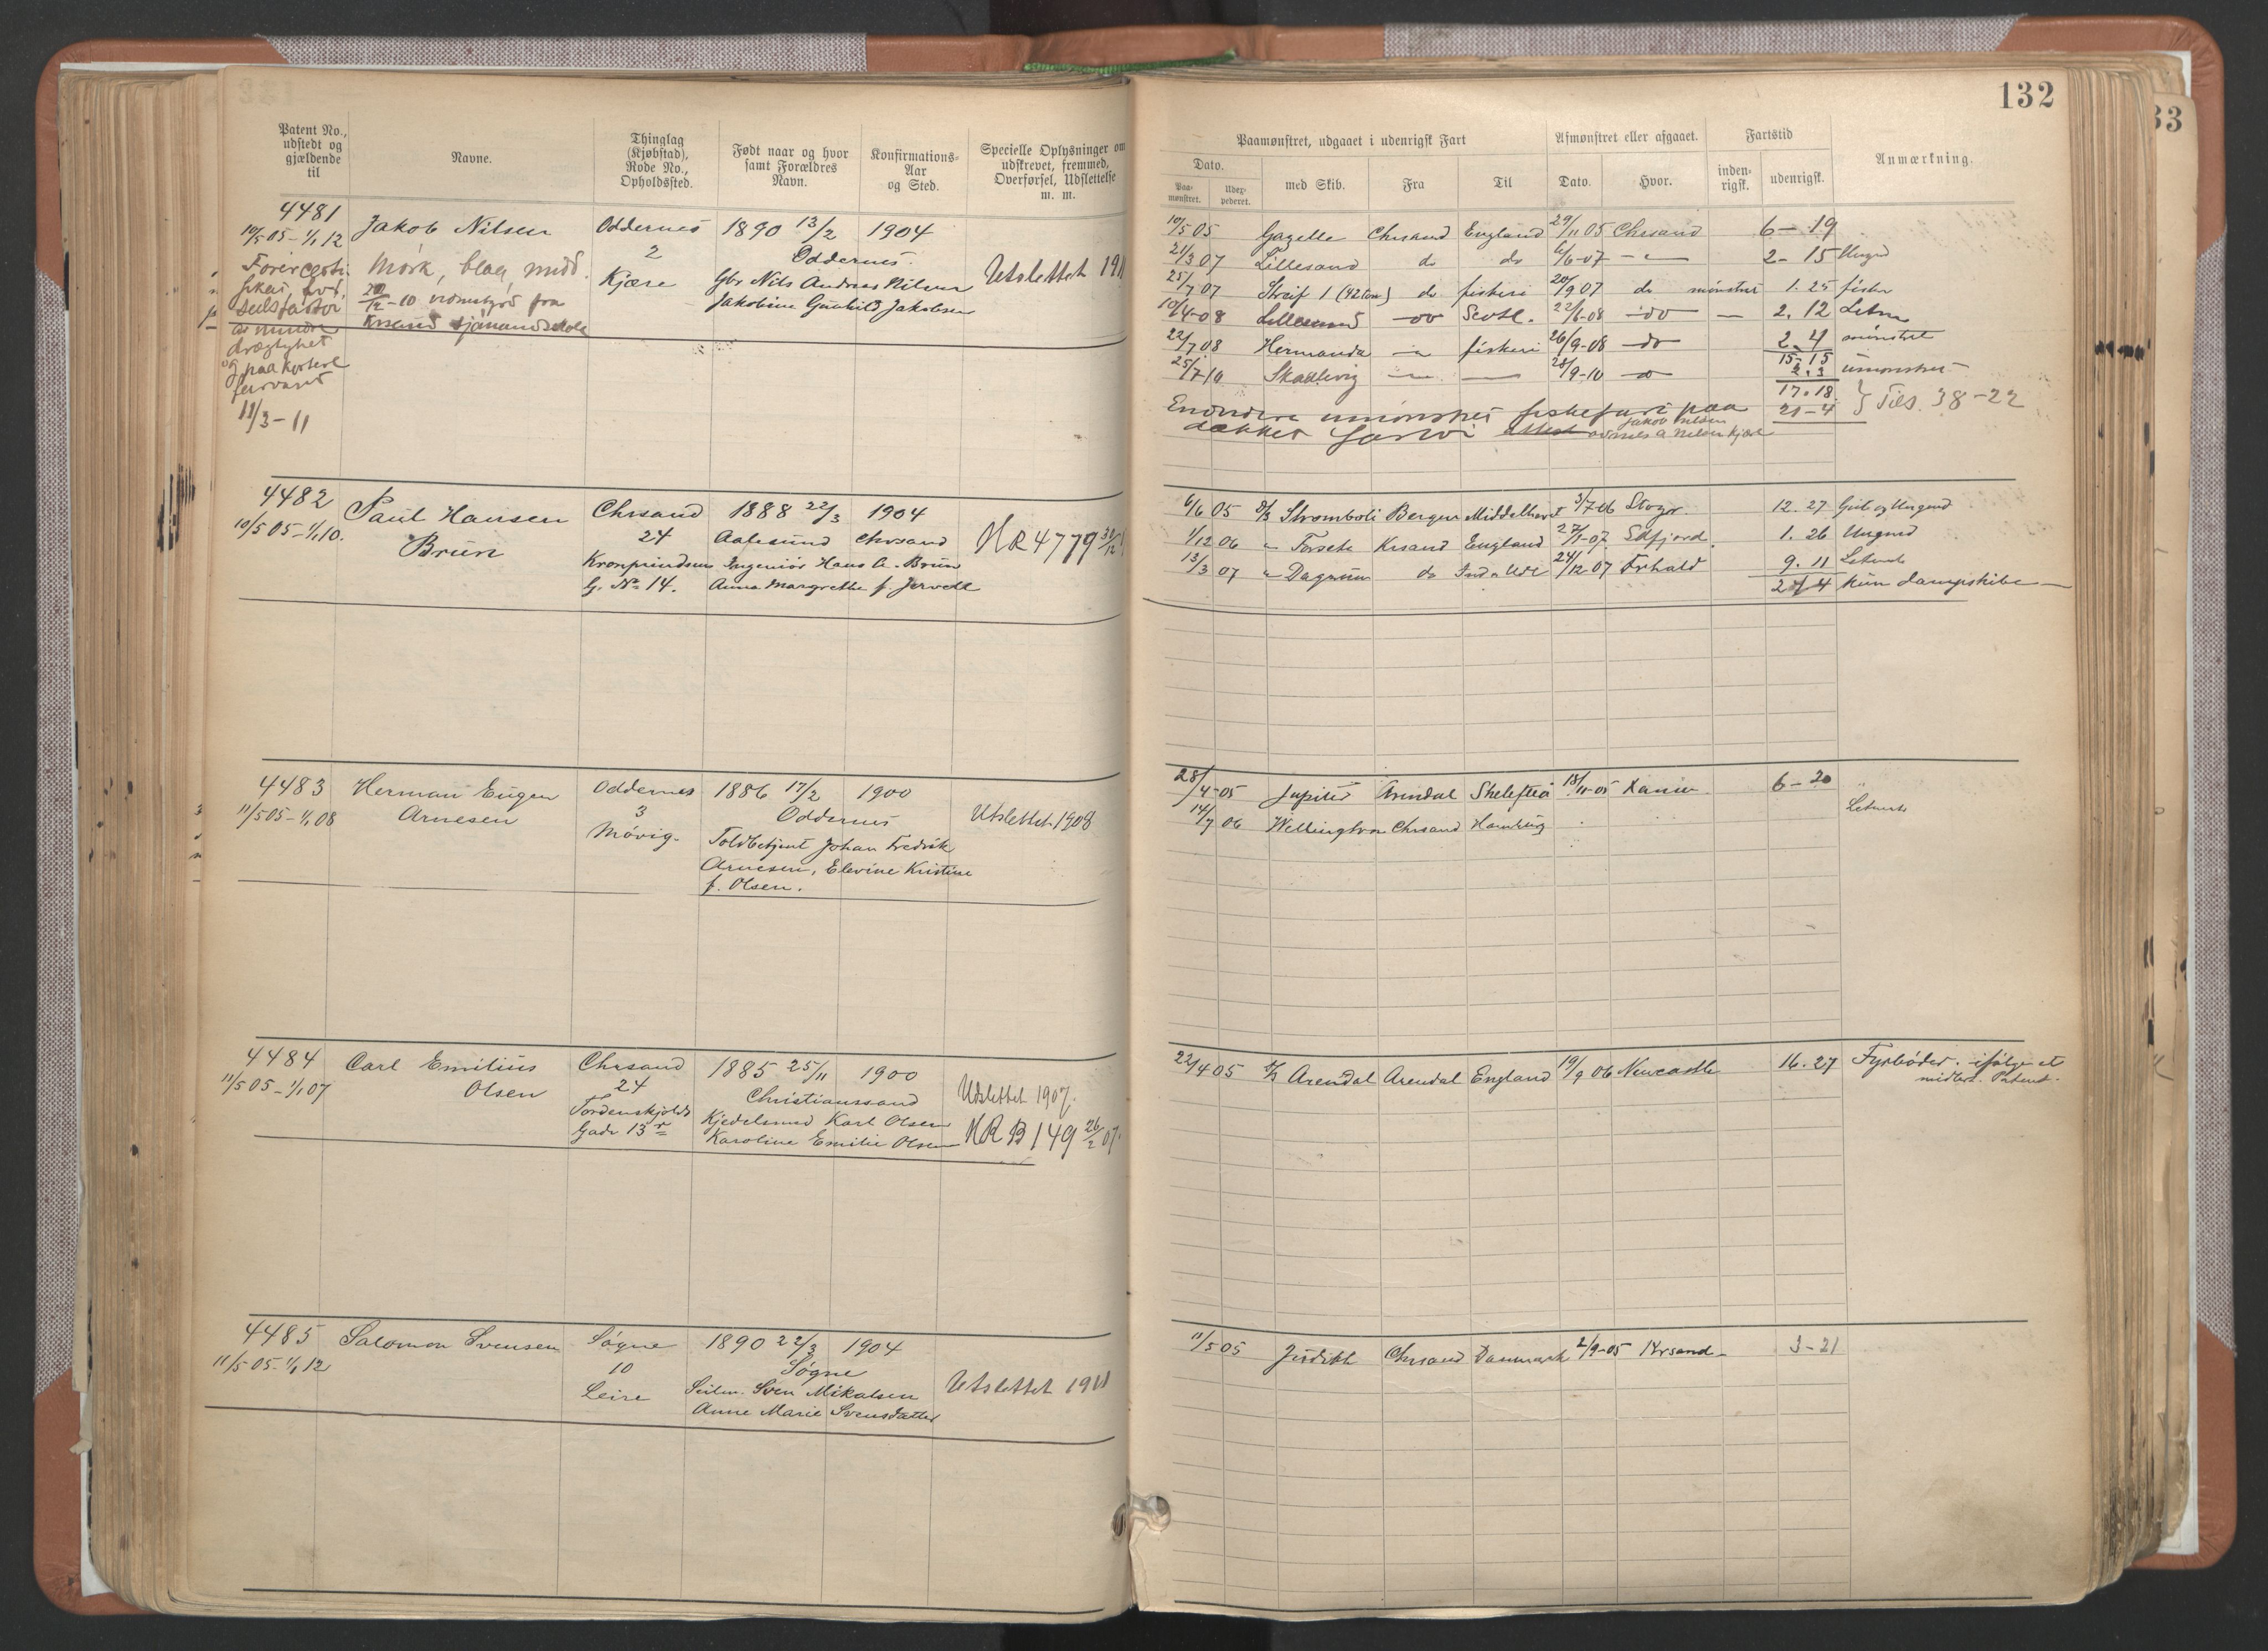 132
33
Patent No., udstedt og gjældende til
Navne.
Thinglag (Kjøbstad), Rode No., Opholdssted.
Født naar og hvor samt Forældres Navn.
Konfirmations-Aar og Sted.
Specielle Oplysninger om udskrevet, fremmed, Overførsel, Udslettelse m. m.
Paamønstret, udgaaet i udenrigsk Fart
Afmønstret eller afgaaet.
Fartstid
Anmærkning.
Dato.
Paa-mønstret.
Udex-pederet.
med Skib.
Fra
Til
Dato.
Hvor.
inden-rigsk.
udenrigsk.
4481
10/5 05 - 1/1 12
Jakob Nilsen
Oddernes
2
Kjære
1890 13/2 1904
Oddernes
Gbr Nils Andreas Nilsen
Jakobine Gunhild Jakobsen
Utslettet 191
Mørk, blaa, midd.
20/12 - 10 vidnesbyrd fra
Krsand sjømandsskole
seilsfartøi
af mindre
drægtighet
og paa kortere
farvand
11/3 - 11
10/5 05 Gazelle Chrsand England 29/11 05 Chrsand 6 - 19
21/3 07 Lillesand do do 6/6-07 - " - 2 - 15 Ungd
25/7 07 Streif 1 (42 ton) do fiskeri 20/9 07 do mønstret 1. 25 fisker
10/4-08 Lillesand - do Scotl. 22/6-08 - do - 2. 12 Letm
22/7 08 Hermanda - " fiskeri 26/9-08 - do 2. 4 mønstret
15 - 15
25/7 10 Skadevig 28/9-10 - do 2. 3 umønstret
17. 18
21 - 4 } Tils. 38 - 22
Endvidere umønstret fiskefart paa
dækket fartøi
Jakob Nilsen
4482
10/5 05 - 1/1 10.
Paul Hansen
Brun
Chrsand
24
Kronprindsens
G. No 14.
1888 22/3 1904
Aalesund Chrsand
Ingeniør Hans A. Brun
Anna Margrethe f. Jervell
NR 4779 30/12
6/6 05 D/S Stromboli Bergen Middelhavet 3/7 06 12. 27 Gut og Ungmd
1/12 06 " Forsete Krsand England 27/1-07. 1. 26 Ungmd
13/3 07 " Dagrun do Ind o Udl 24/12 07 Frhald 9. 11 Letmat
24 4 kun dampskibe -
4483
11/5 05 - 1/1 08
Herman Eugen
Arnesen
Oddernes
3
Møvig.
1886 17/2 1900
Oddernes
Toldbetjent Johan Fredrik
Arnesen, Elevine Kristine
f. Olsen.
Utslettet 1908
28/4-05 Jupiter Arendal Skelefteå 18/11-05 6 - 20
14/7 06 Wellington Chrsand Hamburg
Letmat
4484
11/5 05 - 1/1 07
Carl Emilius
Olsen
Chrsand
24
Tordenskjolds
Gade 13
1885 25/11 1900
Christianssand
Kjedelsmed Karl Olsen
Karoline Emilie Olsen
Udslettet 1907.
NR B 149 26/2 07.
22/4 05 D/S Arendal Arendal England 19/9 06 Newcastle 16. 27 Fyrbøder. ifølge et
midlert. Patent.
4485
11/5 05 - 1/1 12
Salomon Svensen
Søgne
10
Leire
1890 22/3 1904
Søgne
Seilm. Sven Mikalsen
Anne Marie Svensdatter
Utslettet 1911
11/5 05 Judith Chrsand Danmark 2/9-05 Krsand - 3 - 21